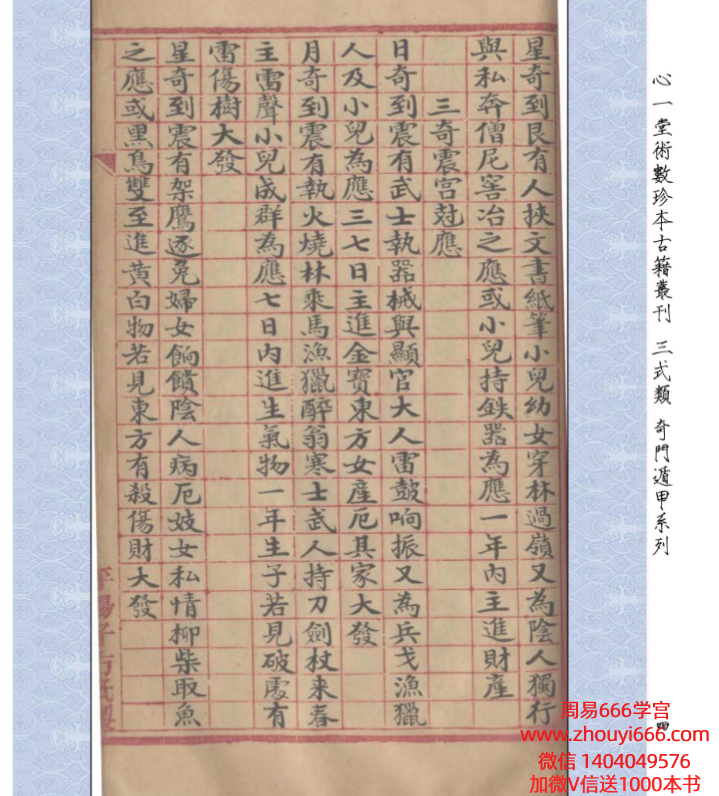 心一堂術數珍本古籍叢刊 三式類 奇門遁甲系列
星奇到艮有人挾文書紙筆小兒幼女穿林過嶺又為陰人獨行
與私奔僧尼窖冶之應或小兒持鉄器為應一年內主進財產
三奇震宮尅應
日奇到震有武士執器械與顯官大人雷鼓响振又為兵戈漁獵
人及小兒為應三七日主進金寶東方女產厄其家大發
月奇到震有執火燒林乘馬漁獵醉翁寒士武人持刀劍杖来春
主雷聲小兒成群為應七日內進生氣物一年生子若見破處有
雷傷樹大發
星奇到震有架鷹逐兔婦女餉饋陰人病厄妓女私情柳柴取魚
之應或黑鳥雙至進黃白物若見東方有殺傷財大發
四
周易666学宫
www.zhouyi666.com
微信 1404049576
加微V信送1000本书